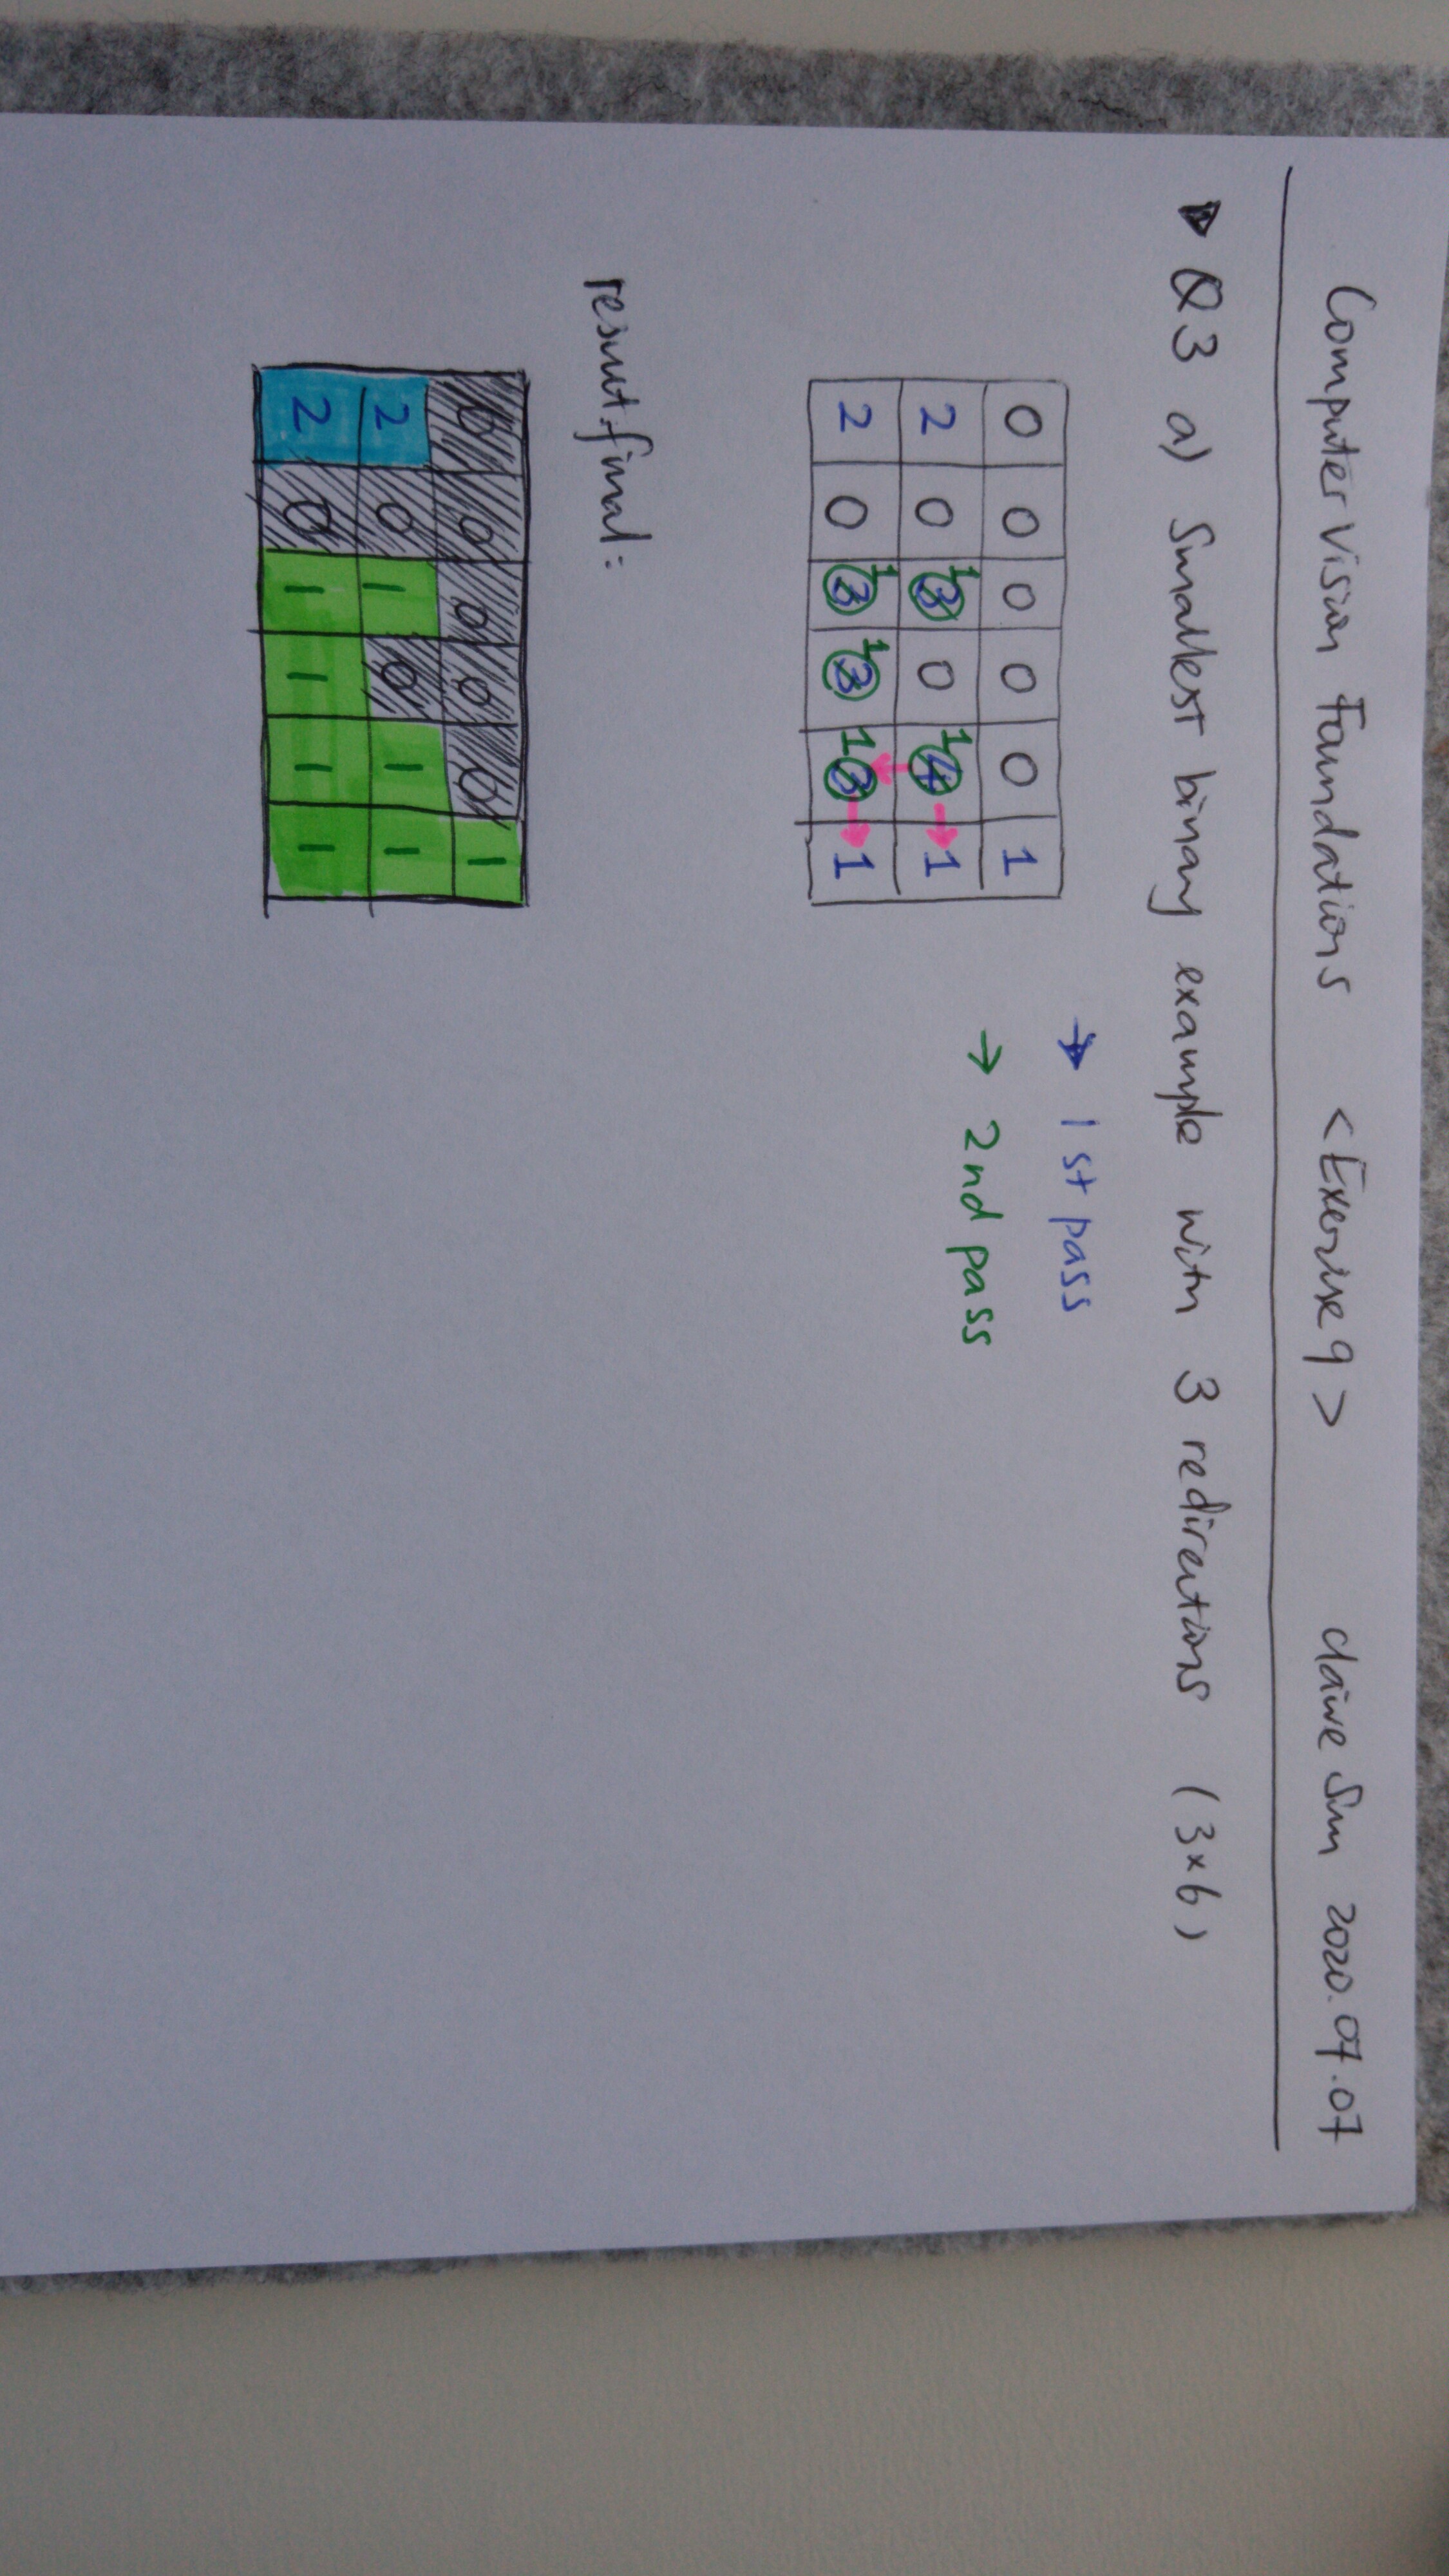 Computer Vision Foundations <Exercise 9> Claire Sun 2020.07.07
Q3 a) Smallest binary example with 3 redirections (3×6)
→ 1st pass
→ 2nd pass
0 0 0 0 0 1
2 0 1 3 0 1 4 → 1
2 0 1 3 1 3 1 3 → 1
result.final:
0 0 0 0 0 1
2 0 1 0 1 1
2 0 1 1 1 1